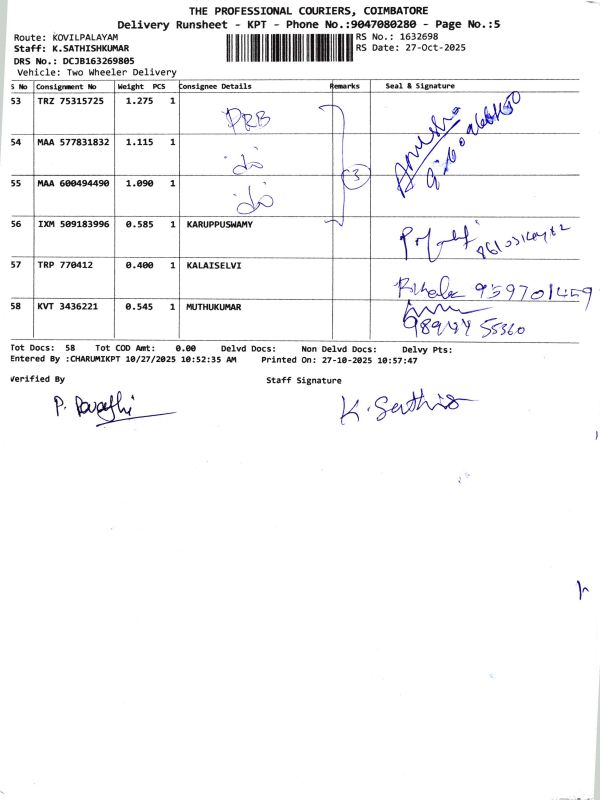 THE PROFESSIONAL COURIERS, COIMBATORE
Delivery Runsheet - KPT - Phone No.:9047080280 - Page No.:5
Route: KOVILPALAYAM
Staff: K.SATHISHKUMAR
DRS No.: DCJB163269805
Vehicle: Two Wheeler Delivery
RS No.: 1632698
RS Date: 27-Oct-2025
S No Consignment No Weight PCS Consignee Details Remarks Seal & Signature
53 TRZ 75315725 1.275 1 PRB Anusha
54 MAA 577831832 1.115 1 do
55 MAA 600494490 1.090 1 do 3
56 IXM 509183996 0.585 1 KARUPPUSWAMY
57 TRP 770412 0.400 1 KALAISELVI 959701459
58 KVT 3436221 0.545 1 MUTHUKUMAR
Tot Docs: 58 Tot COD Amt: 0.00 Delvd Docs: Non Delvd Docs: Delvy Pts:
Entered By :CHARUMIKPT 10/27/2025 10:52:35 AM Printed On: 27-10-2025 10:57:47
Verified By Staff Signature
P. K. Sathis